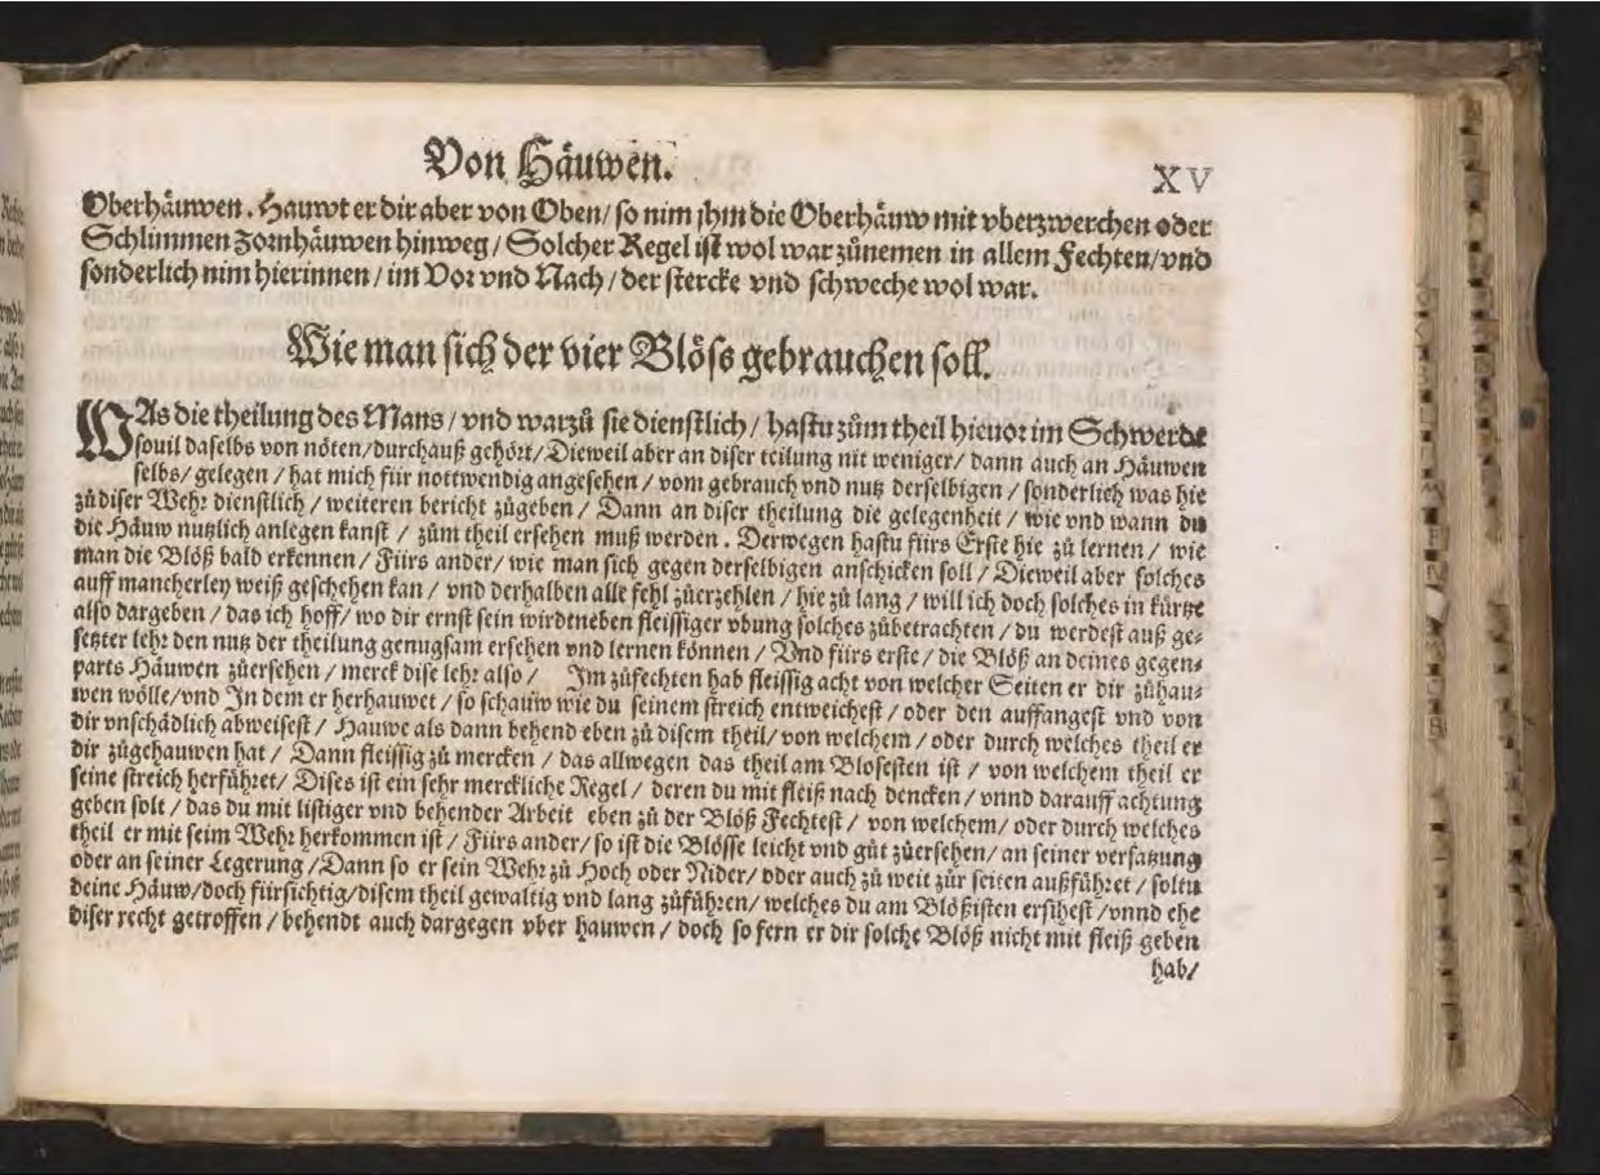 Von Häuwen.
XV
Oberhäuwen. Hauwt er dir aber von Oben/ so nim jhm die Oberhäuw mit vberzwerchen oder
Schlimmen Zornhäuwen hinweg/ Solcher Regel ist wol war zůnemen in allem Fechten/ vnd
sonderlich nim hierinnen/ im Vor vnd Nach/ der stercke vnd schweche wol war.
Wie man sich der vier Blöss gebrauchen soll.
WAs die theilung des Mans/ vnd warzů sie dienstlich/ hastu zům theil hieuor im Schwerdt
souil daselbs von nöten/ durchauß gehört/ Dieweil aber an diser teilung nit weniger/ dann auch an Häuwen
selbs/ gelegen/ hat mich für nottwendig angesehen/ vom gebrauch vnd nutz derselbigen/ sonderlich was hie
zů diser Wehr dienstlich/ weiteren bericht zůgeben/ Dann an diser theilung die gelegenheit/ wie vnd wann du
die Häuw nutzlich anlegen kanst/ zům theil ersehen muß werden. Derwegen hastu fürs Erste hie zů lernen/ wie
man die Blöß bald erkennen/ Fürs ander/ wie man sich gegen derselbigen anschicken soll/ Dieweil aber solches
auff mancherley weiß geschehen kan/ vnd derhalben alle fehl zůerzehlen/ hie zů lang/ will ich doch solches in kürtze
also dargeben/ das ich hoff/ wo dir ernst sein wirdt neben fleissiger vbung solches zůbetrachten/ du werdest auß ge-
setzter lehr den nutz der theilung genugsam ersehen vnd lernen können/ Vnd fürs erste/ die Blöß an deines gegen-
parts Häuwen zůersehen/ merck dise lehr also/ Im zůfechten hab fleissig acht von welcher Seiten er dir zůhau-
wen wölle/ vnd In dem er herhauwet/ so schauw wie du seinem streich entweichest/ oder den auffangest vnd von
dir vnschädlich abweisest/ Hauwe als dann behend eben zů disem theil/ von welchem/ oder durch welches theil er
dir zůgehauwen hat/ Dann fleissig zů mercken/ das allwegen das theil am Blosesten ist/ von welchem theil er
seine streich herführet/ Dises ist ein sehr merckliche Regel/ deren du mit fleiß nach dencken/ vnnd darauff achtung
geben solt/ das du mit listiger vnd behender Arbeit eben zů der Blöß Fechtest/ von welchem/ oder durch welches
theil er mit seim Wehr herkommen ist/ Fürs ander/ so ist die Blösse leicht vnd gůt zůersehen/ an seiner versatzung
oder an seiner Legerung/ Dann so er sein Wehr zů Hoch oder Nider/ oder auch zů weit zůr seiten außführet/ soltu
deine Häuw/ doch fürsichtig/ disem theil gewaltig vnd lang zůführen/ welches du am Blößisten ersihest/ vnnd ehe
diser recht getroffen/ behendt auch dargegen vber hauwen/ doch so fern er dir solche Blöß nicht mit fleiß geben
hab/